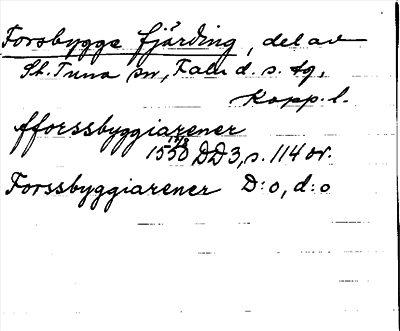 Forsbygge fjärding, del av
St. Tuna sn, Falu d. s. tg,
Kopp. l.
fforssbyggiarener
1550 17/8 DD3, s. 114 or.
Forssbyggiarener D:o, d:o